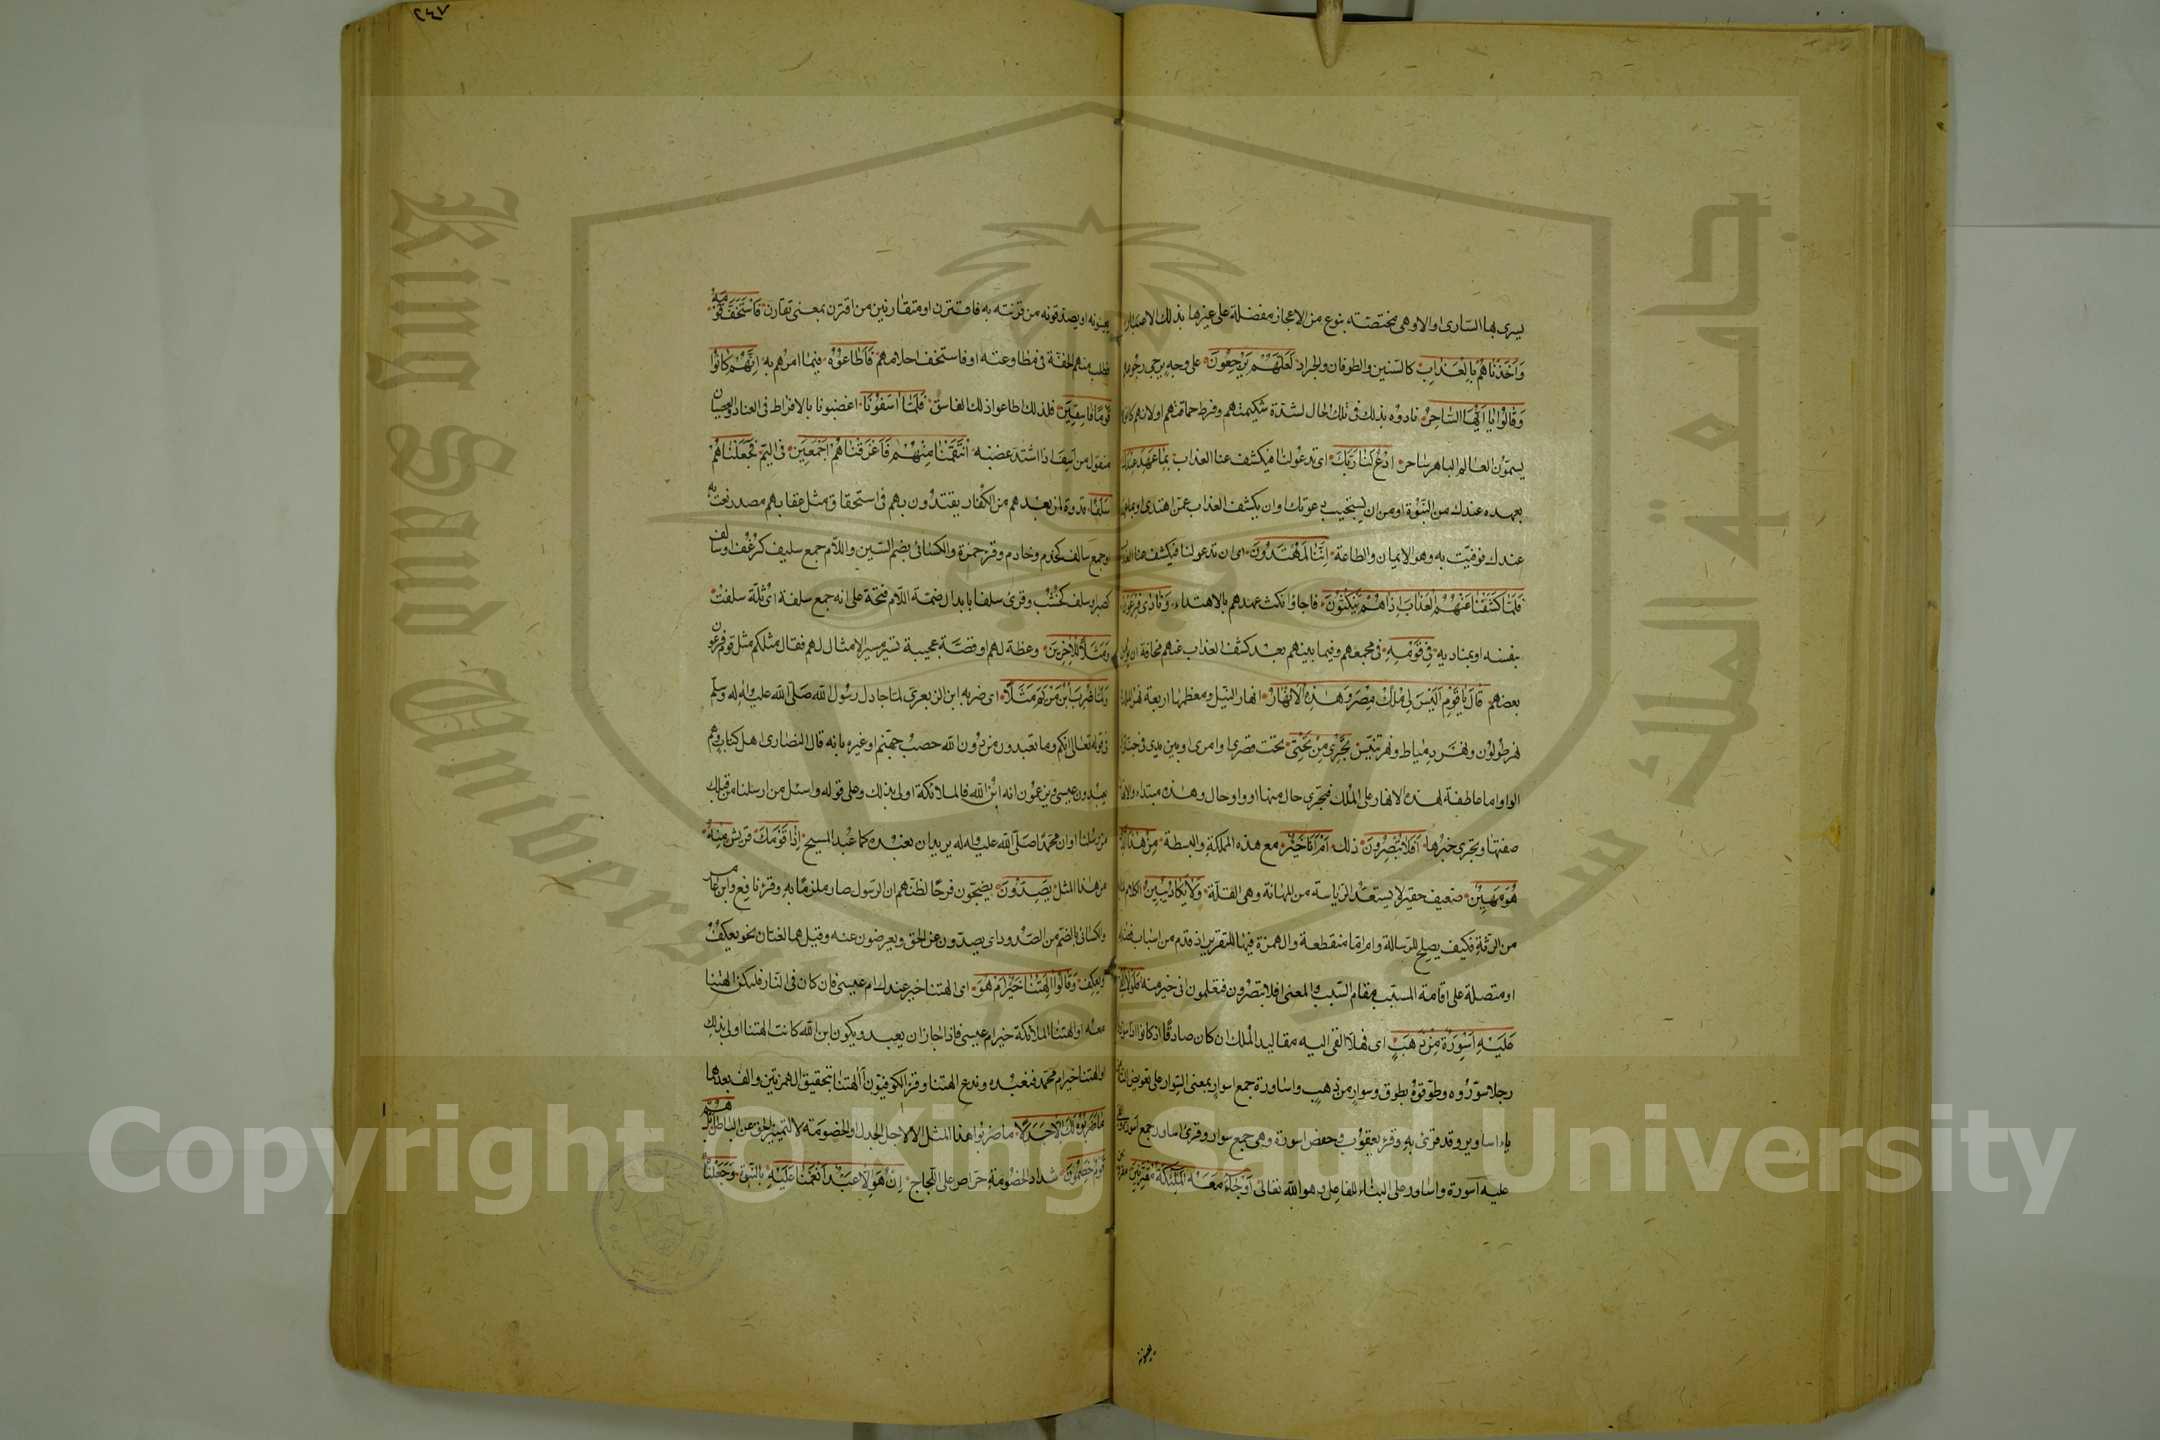 يسرى بها السارى اوالاوهى مختصّة بنوع من الاعجاز مفضلة على غيرها بذلك الاعتبار
وَاَخَذْنَاهُمْ بِالْعَذَابِ كالسّنين والطوفان والجراد لَعَلَّهُمْ يَرْجِعُونَ على وجه يرجى رجوعهم
وَقَالُوا يَا اَيُّهَا السَّاحِرُ نادوه بذلك فى تلك الحال لشدّة شكيمتهم وفرط حماقتهم اولانهم كانوا
يسمّون العالم الباهر ساحرا ادْعُ لَنَا رَبَّكَ اى تدعولنا فيكشف عنا العذاب بِمَا عَهِدَ عِنْدَكَ
بعهده عندك من النّبوّة اومن ان يستجيب دعوتك وان يكشف العذاب عمّن اهتدى اوبما عهد
عندك فوفيت به وهو الايمان والطاعة اِنَّنَا لَمُهْتَدُونَ اى ان تدعولنا فيكشف عنا العذاب
فَلَمَّا كَشَفْنَا عَنْهُمُ الْعَذَابَ اِذَا هُمْ يَنْكُثُونَ فاجاؤا نكث عهدهم بالاهتداء وَنَادَى فِرْعَوْنُ
بنفسه اوبمناديه فِى قَوْمِهِ فى مجمعهم وفيما بينهم بعد كشف العذاب عنهم مخافة ان يؤمن
بعضهم قَالَ يَا قَوْمِ اَلَيْسَ لِى مُلْكُ مِصْرَ وَهٰذِهِ الْاَنْهَارُ انهار النيل ومعظمها اربعة نهر الملك
نهر طولون ونهر دمياط ونهر تنيّس تَجْرِى مِنْ تَحْتِى تحت قصرى اوامرى اوبين يدى فى جنانى
الواو اما عاطفة لهذه الانهار على الملك فتجرى حال منها اوواو حال وهذه مبتداء والانهار
صفتها وتجرى خبرها اَفَلَا تُبْصِرُونَ ذلك اَمْ اَنَا خَيْرٌ مع هذه المملكة والبسطة مِنْ هٰذَا الَّذِى
هُوَ مَهِينٌ ضعيف حقير لايستعدّ الرّياسة من المهانة وهى القلّة وَلَا يَكَادُ يُبِينُ الكلام لما به
من الرّتّة فكيف يصلح للرّسالة وام امّا منقطعة والهمزة فيها للتقرير اذ قدم من اسباب فضله
اومتصلة على اقامة المسبّب مقام السّبب والمعنى افلا تبصرون فتعلمون انى خير منه فَلَوْلَا اُلْقِىَ
عَلَيْهِ اَسْوِرَةٌ مِنْ ذَهَبٍ اى فهلّا القى اليه مقاليد الملك ان كان صادقا اذ كانوا اذا سوّدوا
رجلا سوّروه وطوّقوه بطوق وسوار من ذهب واساورة جمع اسوار بمعنى السّوار على تعويض التاء من
ياء اساوير وقد قرئ به وقرء يعقوب وحفص اسورة وهى جمع سوار وقرئ اساور جمع اسورة والقى
عليه اسورة واساور على البناء للفاعل وهو الله تعالى اَوْ جَاءَ مَعَهُ الْمَلٰئِكَةُ مُقْتَرِنِينَ مقرونين
يعينونه
٢٤٧
يعينونه اويصدقونه من قرنته به فاقترن اومتقارنين من اقترن بمعنى تقارن فَاسْتَخَفَّ قَوْمَهُ
فطلب منهم الخفّة فى مطاوعته اوفاستخف احلامهم فَاَطَاعُوهُ فيما امرهم به اِنَّهُمْ كَانُوا
قَوْمًا فَاسِقِينَ فلذلك اطاعوا ذلك الفاسق فَلَمَّا اٰسَفُونَا اغضبونا بالافراط فى العناد والعصيان
منقول من اسف اذا اشتد غضبه انْتَقَمْنَا مِنْهُمْ فَاَغْرَقْنَاهُمْ اَجْمَعِينَ فى اليمّ فَجَعَلْنَاهُمْ
سَلَفًا قدوة لمن بعدهم من الكفّار يقتدون بهم فى استحقاق مثل عقابهم مصدر نعت به
اوجمع سالف كخدم وخادم وقرء حمزة والكسائى بضم السّين واللام جمع سليف كرغف اوسالف
كصبر اوسلف كخشب وقرئ سلفا بابدال ضمّة اللّام فتحة على انه جمع سلفة اى ثلّة سلفت
وَمَثَلًا لِلْاٰخِرِينَ وعظة لهم اوقصّة عجيبة تسير مسير الامثال لهم فقال مثلكم مثل قوم فرعون
وَلَمَّا ضُرِبَ ابْنُ مَرْيَمَ مَثَلًا اى ضربه ابن الزبعرى لمّا جادل رسول الله صلّى الله عليه واله وسلّم
فى قوله تعالى انكم وما تعبدون من دون الله حصب جهنّم اوغيره بانه قال النصارى اهل كتاب وهم
يعبدون عيسى ويزعمون انه ابن الله فالملائكة اولى بذلك وعلى قوله واسئل من ارسلنا من قبلك
من رسلنا اوان محمّدا صلّى الله عليه واله يريد ان نعبده كما عبد المسيح اِذَا قَوْمُكَ قريش مِنْهُ
من هذا المثل يَصِدُّونَ يضجّون فرحًا لظنّهم ان الرّسول صار ملزما به وقرء نافع وابن عامر
والكسائى بالضّم من الصّدود اى يصدّون عن الحق ويعرضون عنه وقيل هما لغتان نحو يعكف
ويعكف وَقَالُوا اٰلِهَتُنَا خَيْرٌ اَمْ هُوَ اى الهتنا خير عندك ام عيسى فان كان فى النّار فلتكن الهتنا
معه اوالهتنا الملائكة خير ام عيسى فاذا جاز ان يعبد ويكون ابن الله كانت الهتنا اولى بذلك
اوالهتنا خير ام محمّد فنعبده وندع الهتنا وقرء الكوفيّون أالهتنا بتحقيق الهمزتين والف بعدهما
مَا ضَرَبُوهُ لَكَ اِلَّا جَدَلًا ما ضربوا هذا المثل الا لاجل الجدل والخصومة لا لتمييز الحق عن الباطل بَلْ هُمْ
قَوْمٌ خَصِمُونَ شداد الخصومة حرّاص على اللّجاج اِنْ هُوَ اِلَّا عَبْدٌ اَنْعَمْنَا عَلَيْهِ بالنّبوّة وَجَعَلْنَاهُ
King Saud University
جامعة الملك سعود
Copyright © King Saud University